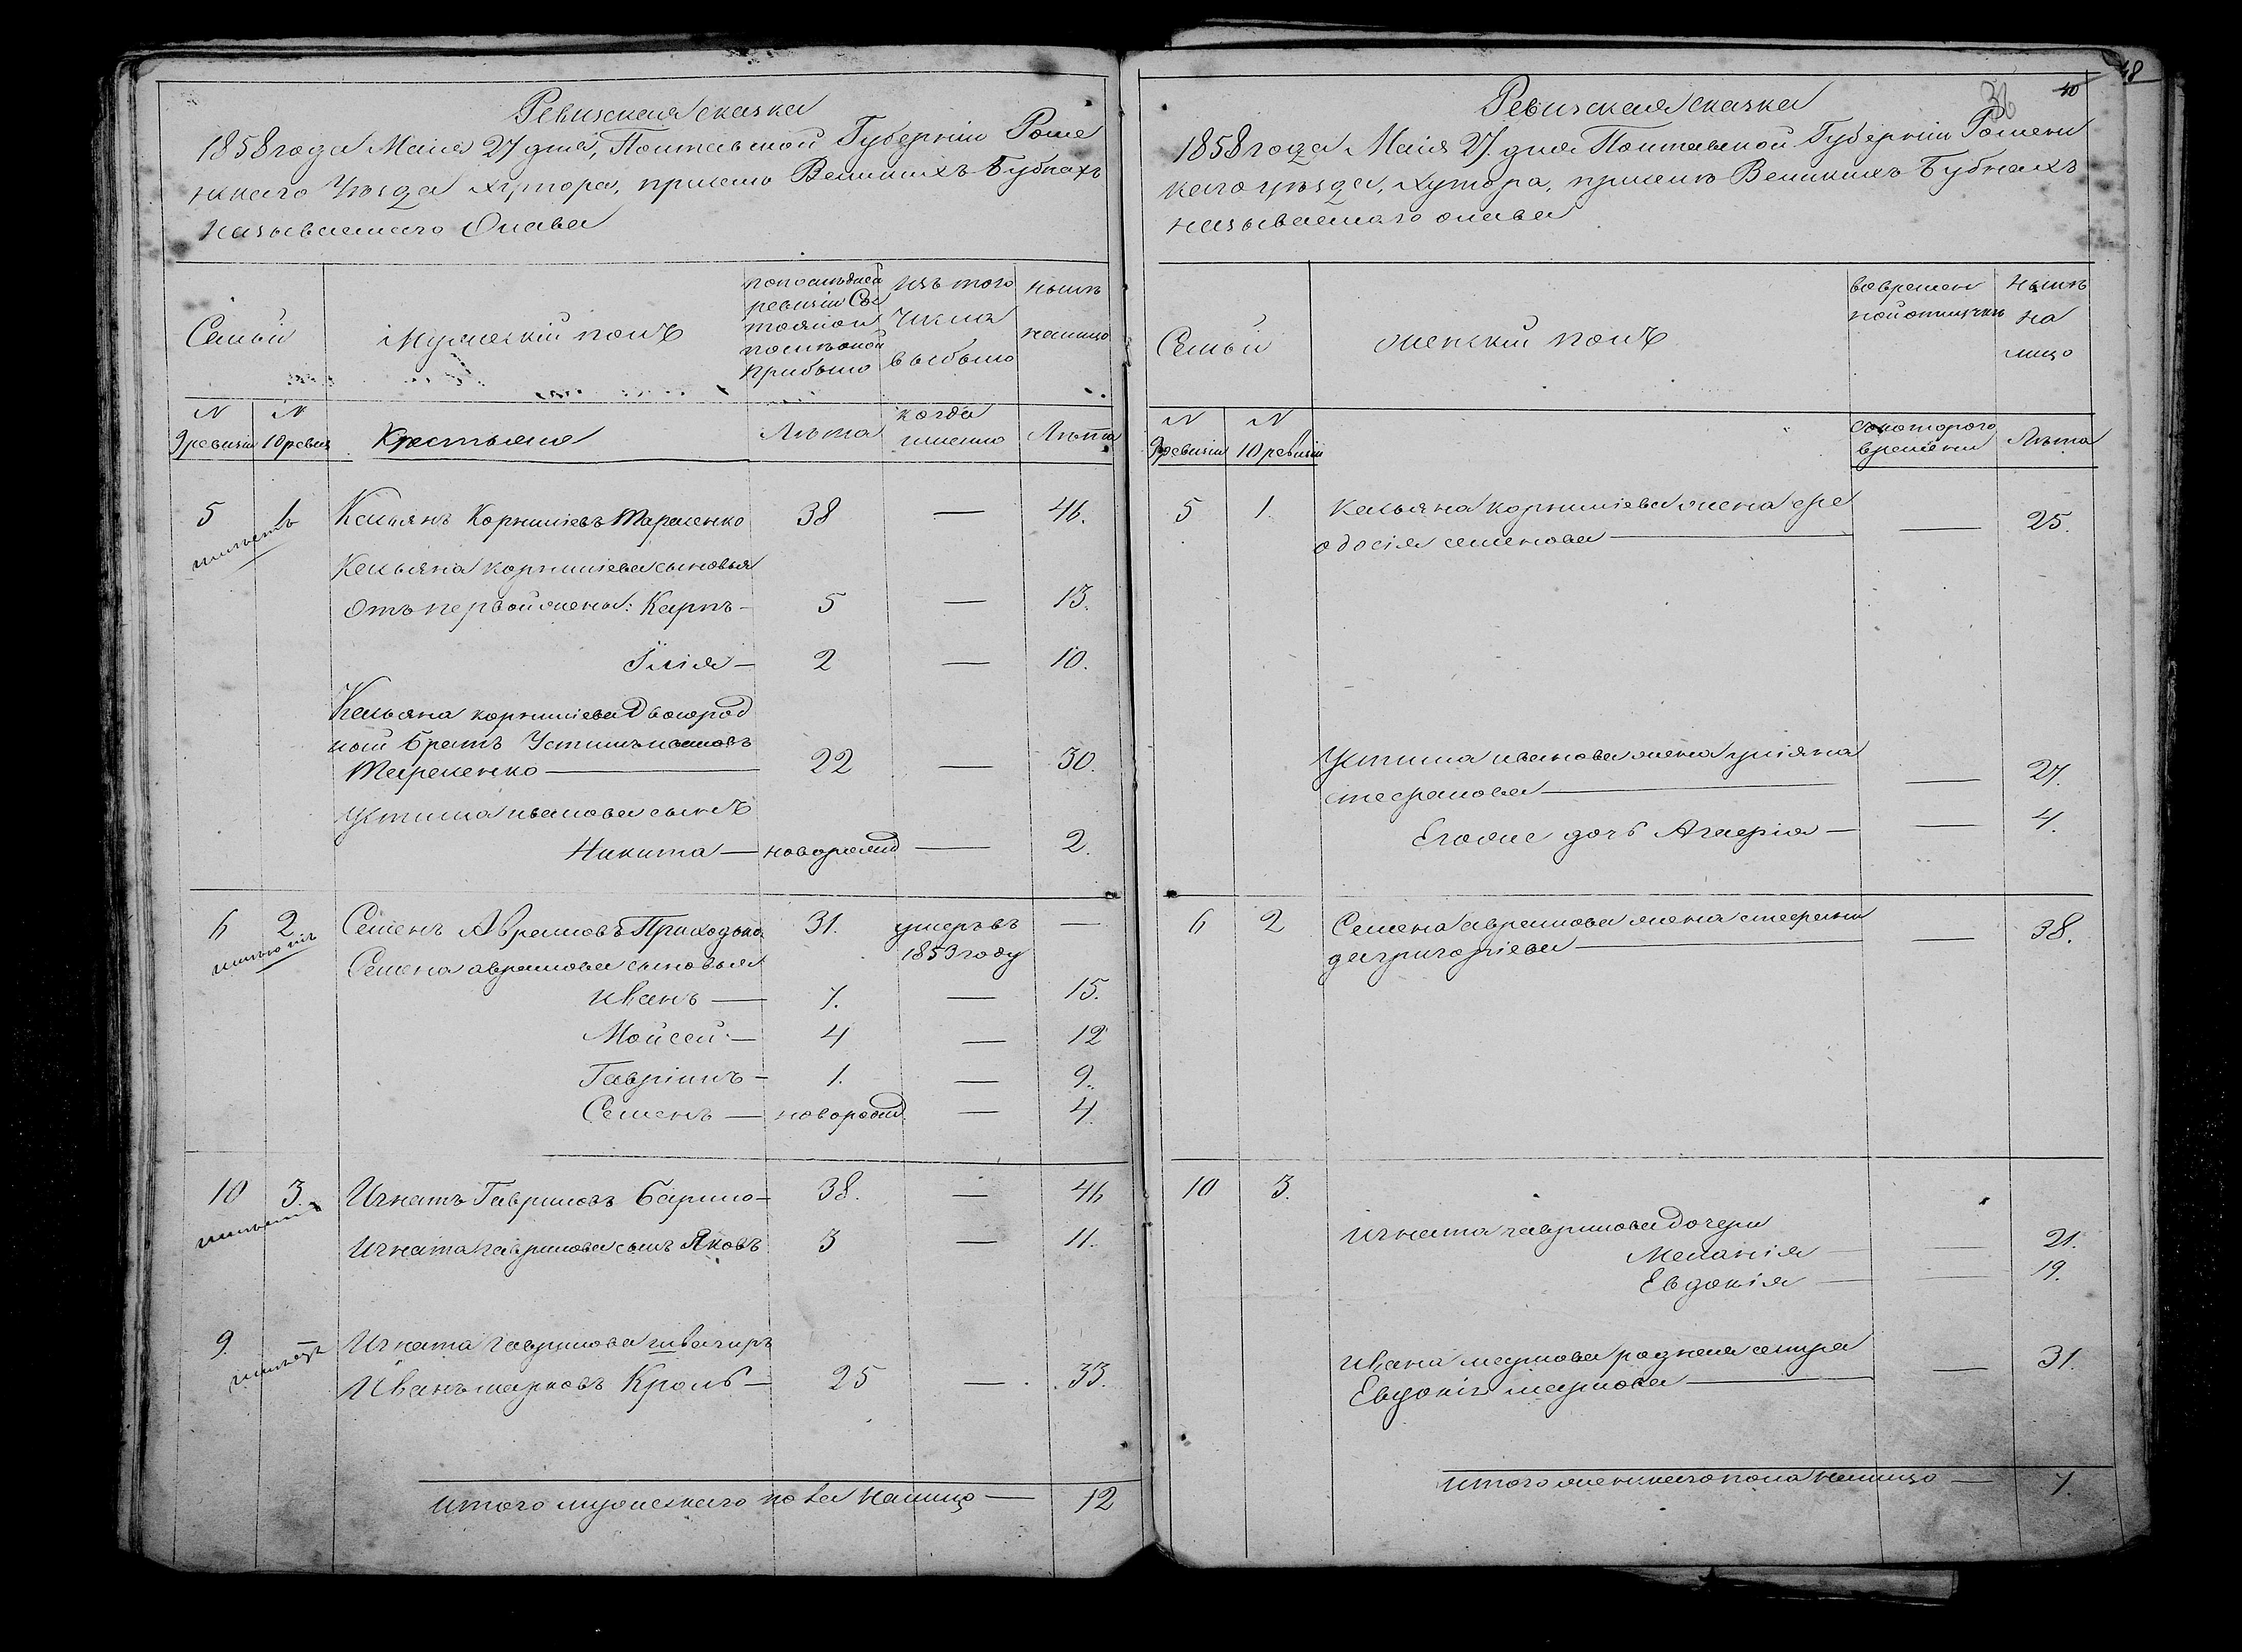 Ревизская сказка
1858 года Маия 27 дня, Полтавской Губерніи Роме
нскаго Уѣзда хутора, прислю Великихъ Бубнахъ
называемаго Слава
Семьи
Мужескій полъ
По последней
ревизіи Сос
тояло и
после оной
прибыло
изъ того
числа
выбыло
нынѣ
налицо
N
9 ревизіи
N
10 ревиз
Крестьяне
Лѣта
когда
именно
Лѣта
5
1
Касьянъ Корниліевъ Тараненко
38
—
46.
Касьяна Корниліева сыновья
Отъ первой жены: Карпъ —
5
—
13.
Илія —
2
—
10.
Касьяна Корниліева Двоюрод
ной братъ Устимъ Ивановъ
Тараненко —
22
—
30.
Устима Иванова сынъ
Никита —
новорожд
—
2.
6
2
Семенъ Аврамовъ Приходько
31.
умеръ въ
1853 году
—
Семена Аврамова сыновья
Иванъ —
7.
—
15.
Мойсей —
4
—
12
Гавріилъ —
1.
—
9.
Семенъ —
новорожд.
—
4.
10
3.
Игнатъ Гавриловъ Барило —
38.
—
46
Игната Гаврилова сынъ Яковъ
3
—
11.
9.
Игната Гаврилова швагиръ
Иванъ Марковъ Кроль —
25
—
33.
Итого мужескаго пола налицо —
12
48
36
40
Ревизская сказка
1858 года Маія 27 дня Полтавской Губерніи Роменс
каго уѣзда, хутора, Великихъ Бубнахъ
называемаго Слава
Семьи
женскій полъ
во времен
ной отлучкѣ
Нынѣ
на
лицо
N
9 ревизіи
N
10 ревизіи
съ котораго
времени
Лѣта
5
1.
Касьяна Корниліева жена Фе
одосія Семенова —
—
25.
Устима Иванова жена Уліяна
Стефанова —
—
27.
Егоже дочь Агафія —
—
4.
6
2
Семена Аврамова жена Стефани
да Григоріева —
—
38.
10
3.
Игната Гаврилова дочери
Меланія —
—
21.
Евдокія —
—
19.
Ивана Маркова родная сестра
Евдокія Маркова —
—
31.
Итого женскаго пола налицо —
7.